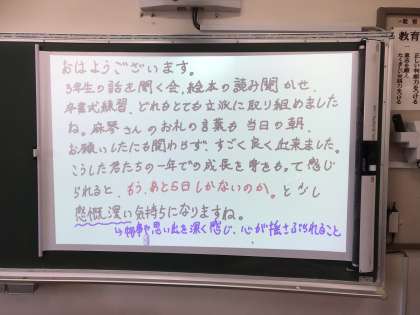 おはようございます。
3年生の話を聞く会、絵本の読み聞かせ、
卒業式練習、どれもとても立派に取り組めました
ね。麻琴さんのお礼の言葉も当日の朝、
お願いしたにも関わらず、すごく良く出来ました。
こうした君たちの一年での成長を身をもって感じ
られると、もう、あと5日しかないのか。と少し
感慨深い気持ちになりますね。
↳物事や思い出を深く感じ、心が揺さぶられること
教育